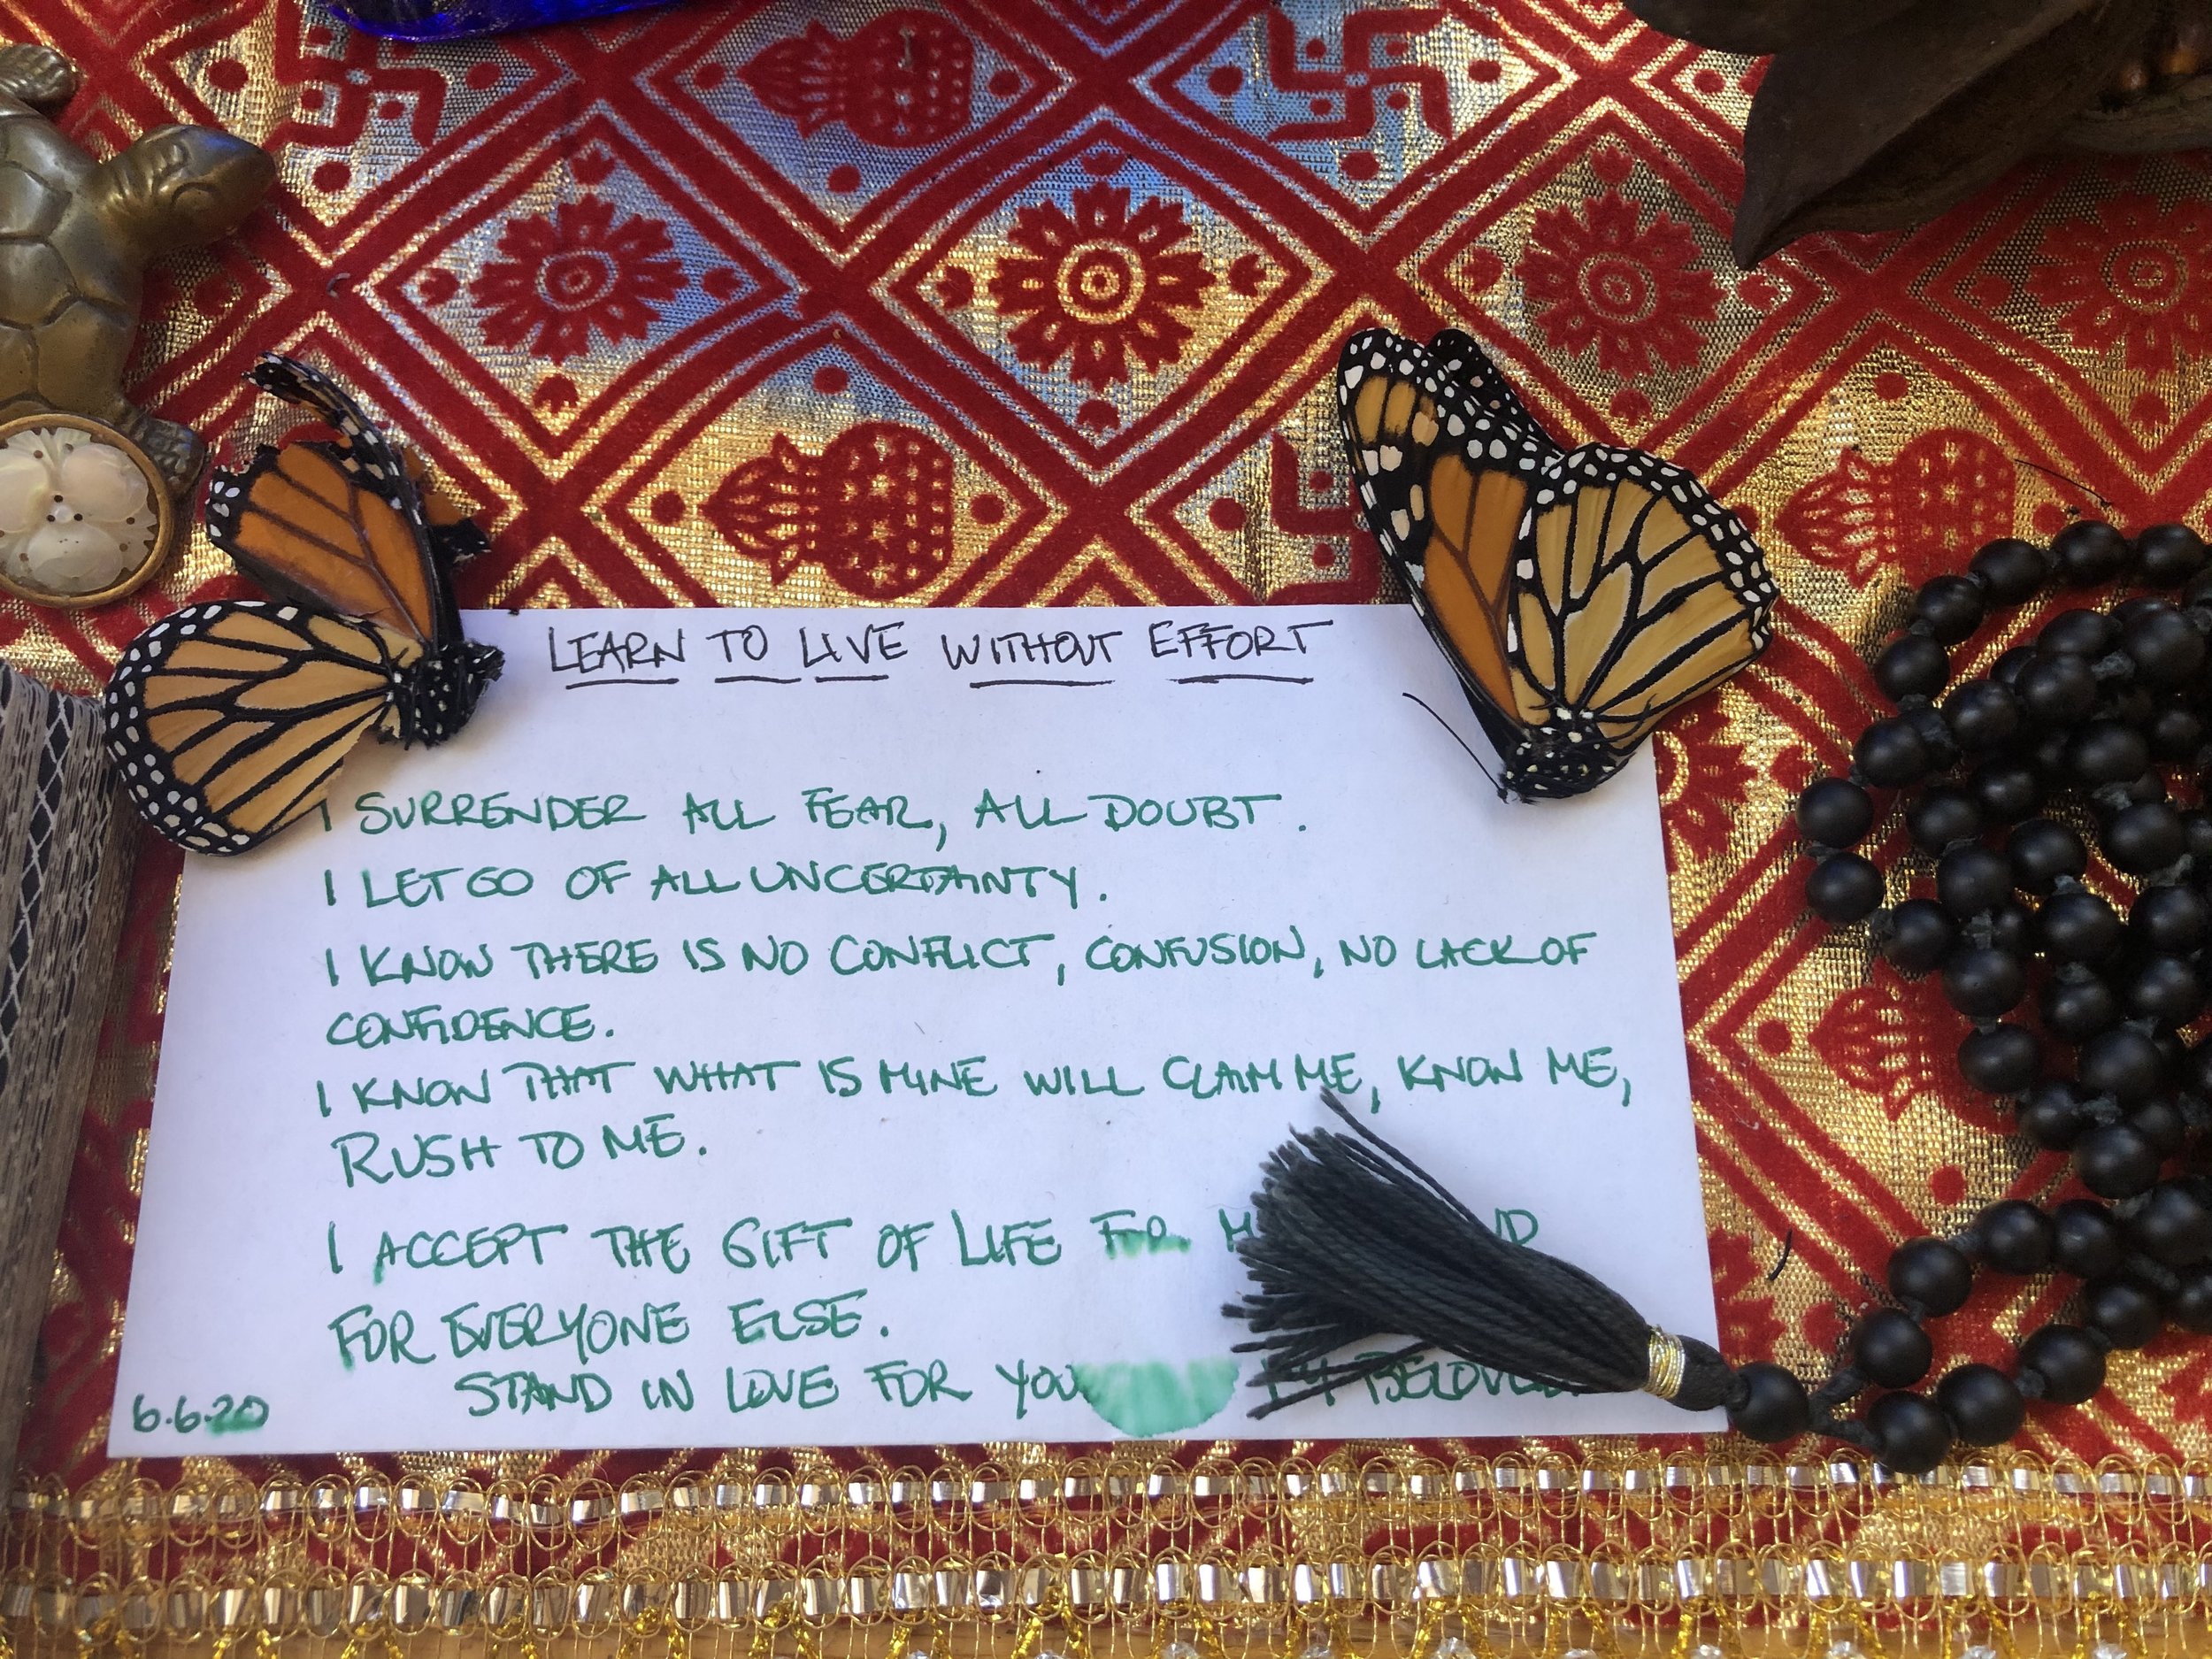 LEARN TO LIVE WITHOUT EFFORT
I SURRENDER ALL FEAR, ALL DOUBT.
I LET GO OF ALL UNCERTAINTY.
I KNOW THERE IS NO CONFLICT, CONFUSION, NO LACK OF
CONFIDENCE.
I KNOW THAT WHAT IS MINE WILL CLAIM ME, KNOW ME,
RUSH TO ME.
I ACCEPT THE GIFT OF LIFE FOR
FOR EVERYONE ELSE.
STAND IN LOVE FOR YOU BELOVED
6.6.20